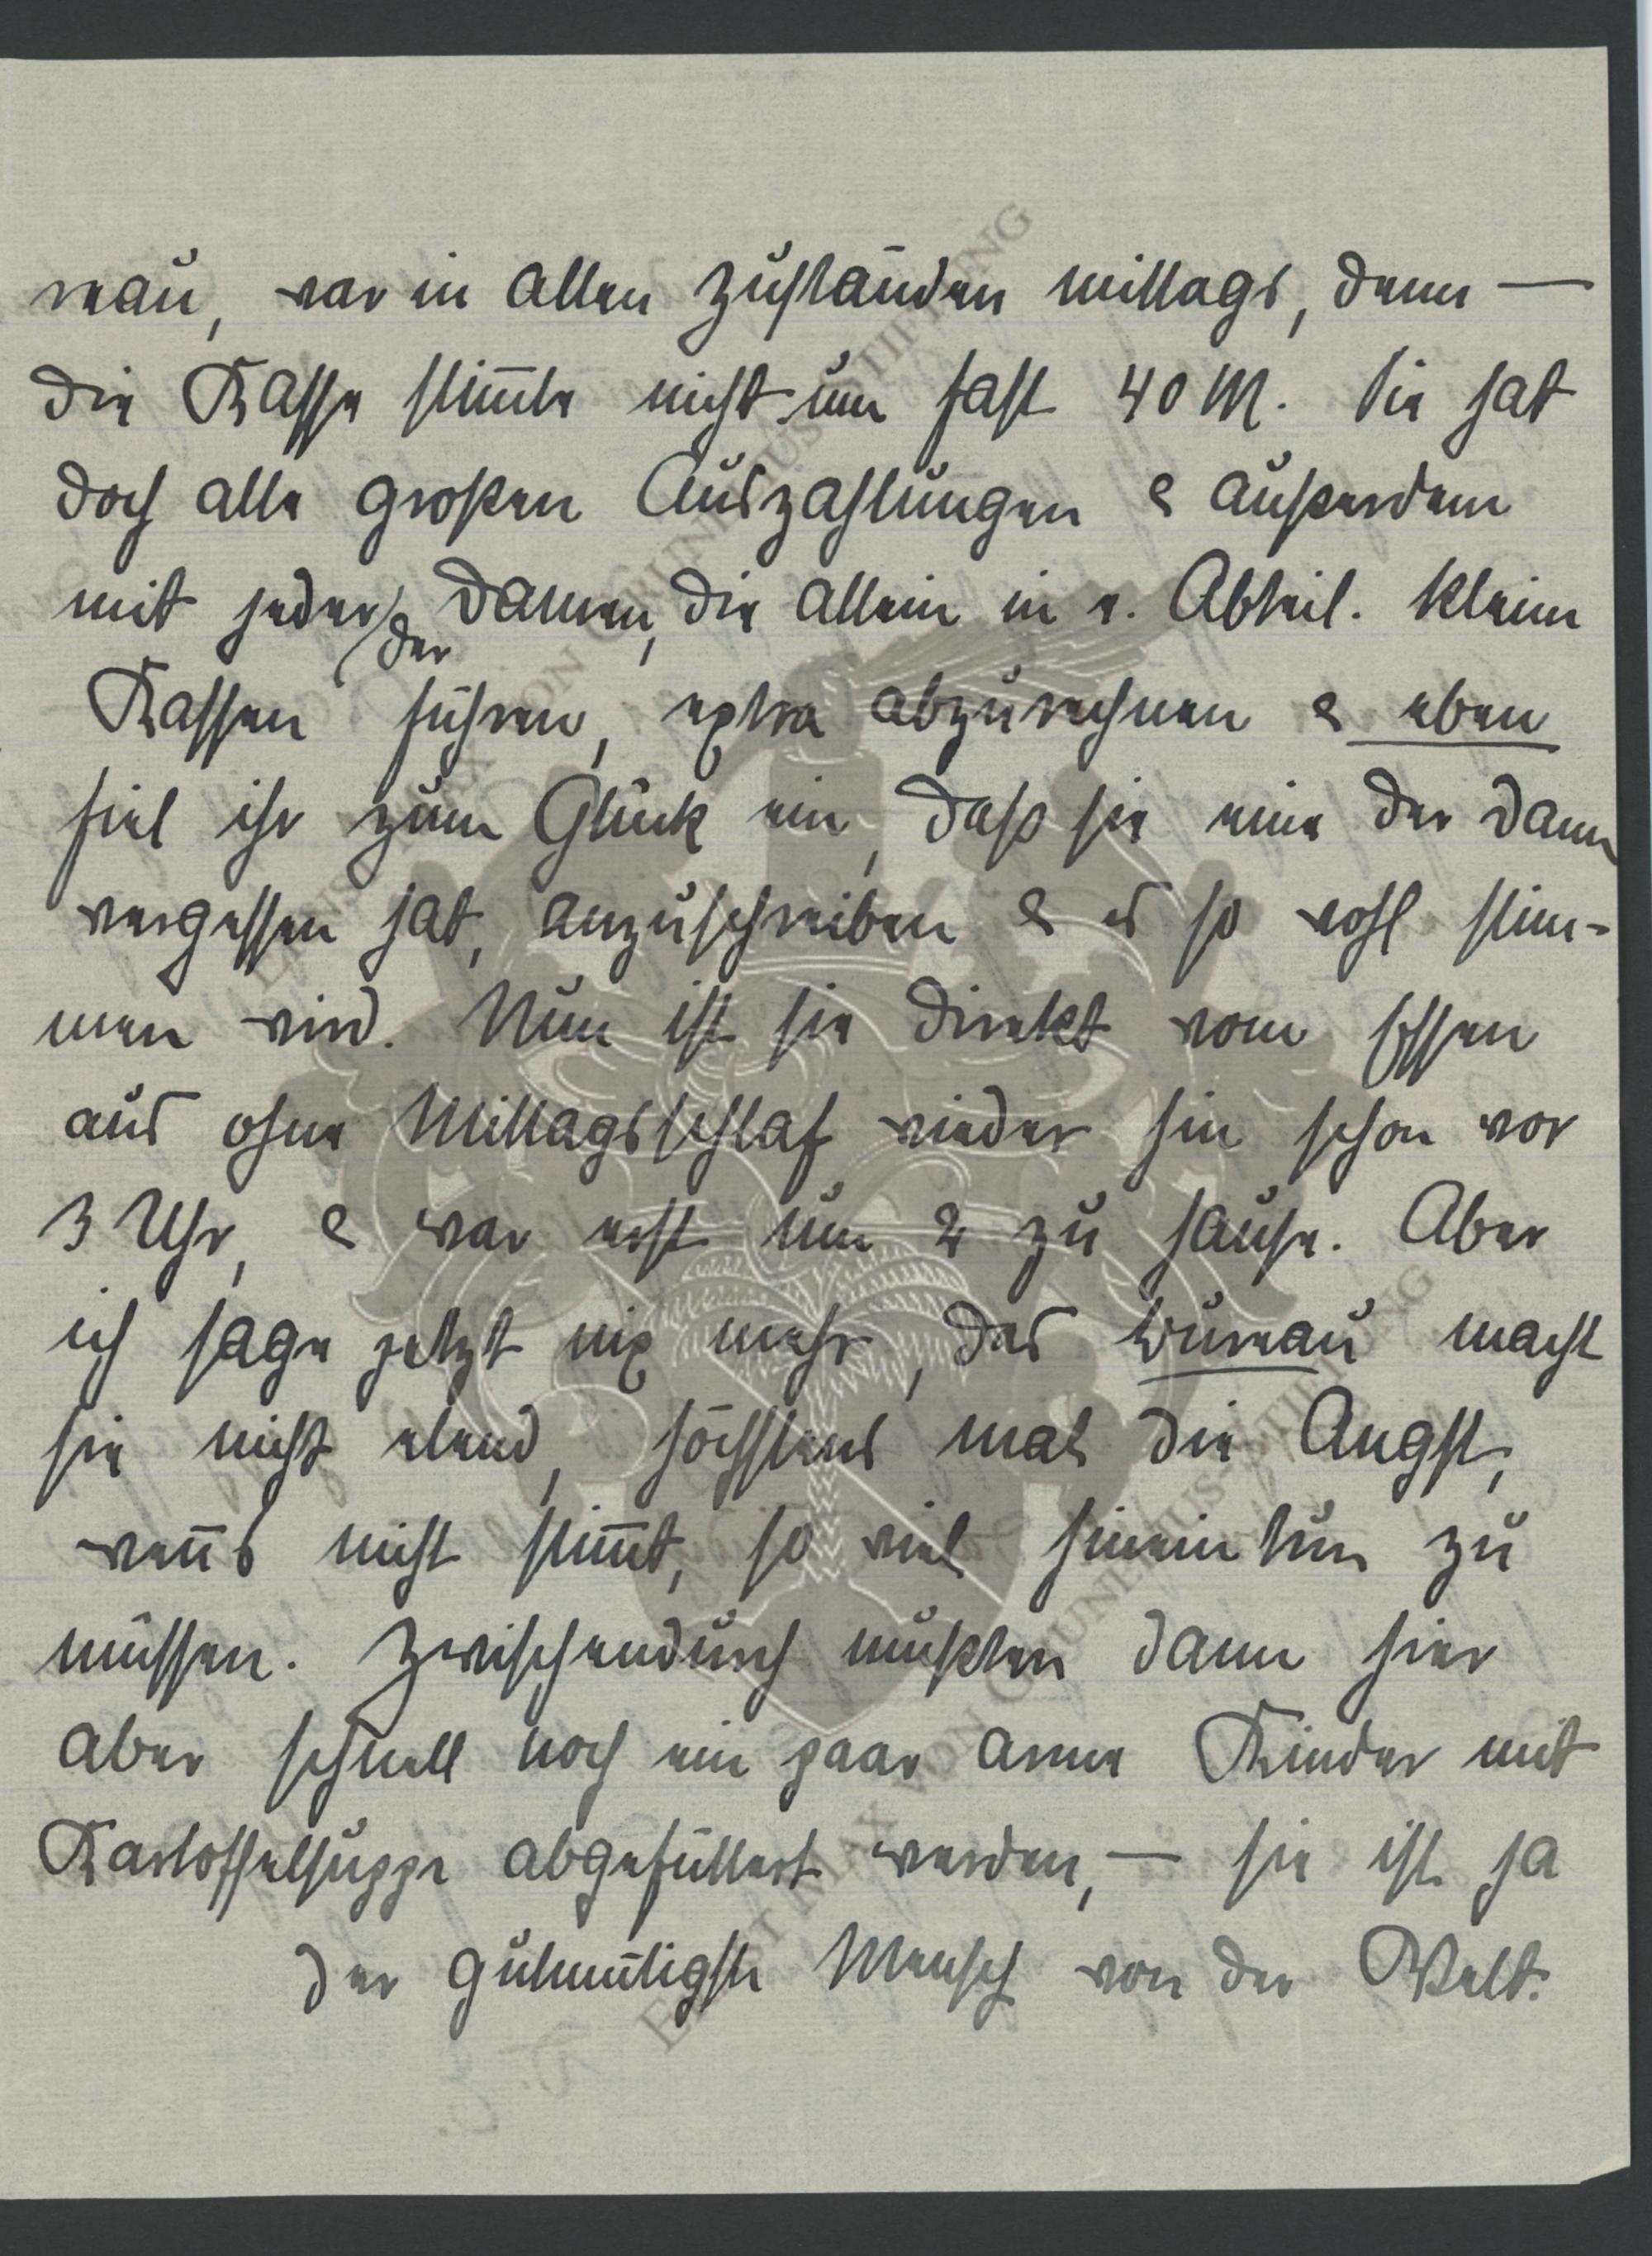 reau, war in allen Zuständen mittags, denn —
die Kasse stim̅te nicht um fast 40 M. Sie hat
doch alle großen Auszahlungen & außerdem
mit jeder der Damen, die allein in e. Abteil. kleine
Kassen führen, extra abzurechnen & eben
fiel ihr zum Glück ein, daß sie eine der Damen
vergessen hat, anzuschreiben & es so wohl stim-
men wird. Nun ist sie direkt vom Essen
aus ohne Mittagsschlaf wieder hin schon vor
3 Uhr, & war erst um 2 zu hause. Aber
ich sage jetzt nix mehr, das Büreau macht
sie nicht elend, höchstens mal die Angst,
wen̅s nicht stim̅t, so viel hineintun zu
müssen. Zwischendurch mußten dann hier
aber schnell noch ein paar arme Kinder mit
Kartoffelsuppe abgefüttert werden, — sie ist ja
der gutmütigste Mensch von der Welt.
ERNST MAX VON GRUNELIUS-STIFTUNG
ERNST MAX VON GRUNELIUS-STIFTUNG